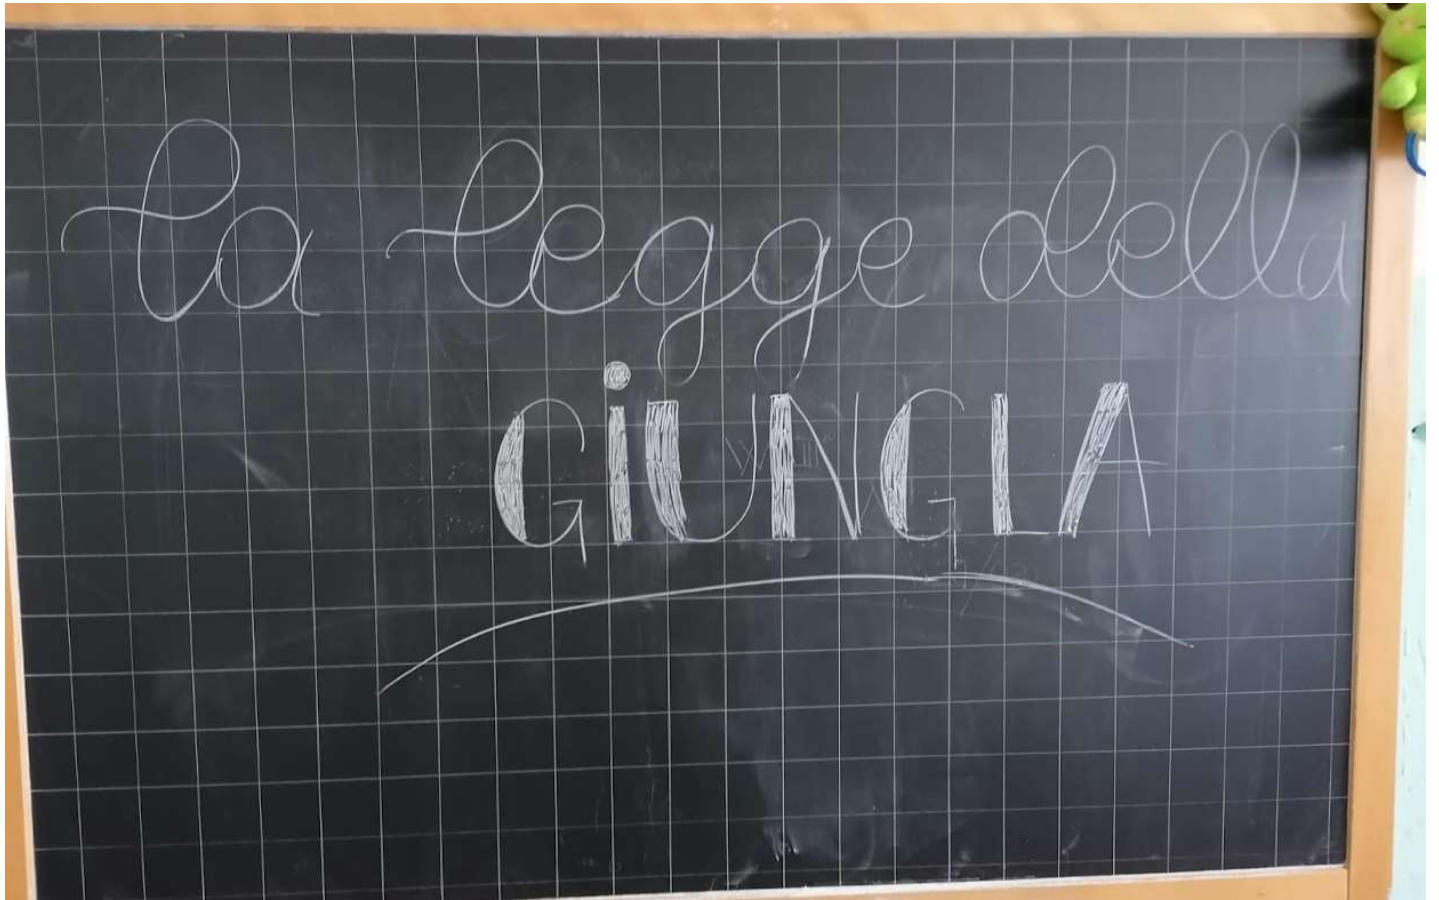 La legge della
GiUNGLA